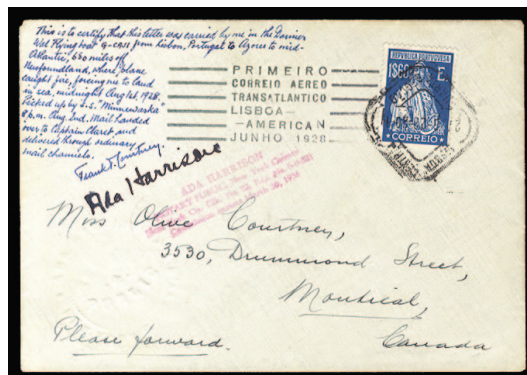 This is to certify that this letter was carried by me in the Dornier
Wal flying boat G-CAJI from Lisbon, Portugal to Azores to mid-
Atlantic, 680 miles off
Newfoundland, where plane
caught fire, forcing me to land
in sea, midnight Aug 1st, 1928.
Picked up by S.S. "Minnewaska"
8 p.m. Aug 2nd. Mail handed
over to Captain Claret and
delivered through ordinary
mail channels.
Frank T. Courtney.
Ada Harrison
PRIMEIRO
CORREIO AEREO
TRANSATLANTICO
LISBOA—
—AMERICAN
JUNHO 1928
REPUBLICA PORTUGUESA
1$60 E.
CORREIO
ADA HARRISON
NOTARY PUBLIC, New York County
Commission expires March 30, 1936
Miss Olive Courtney,
3530, Drummond Street,
Montreal,
Canada
Please forward.